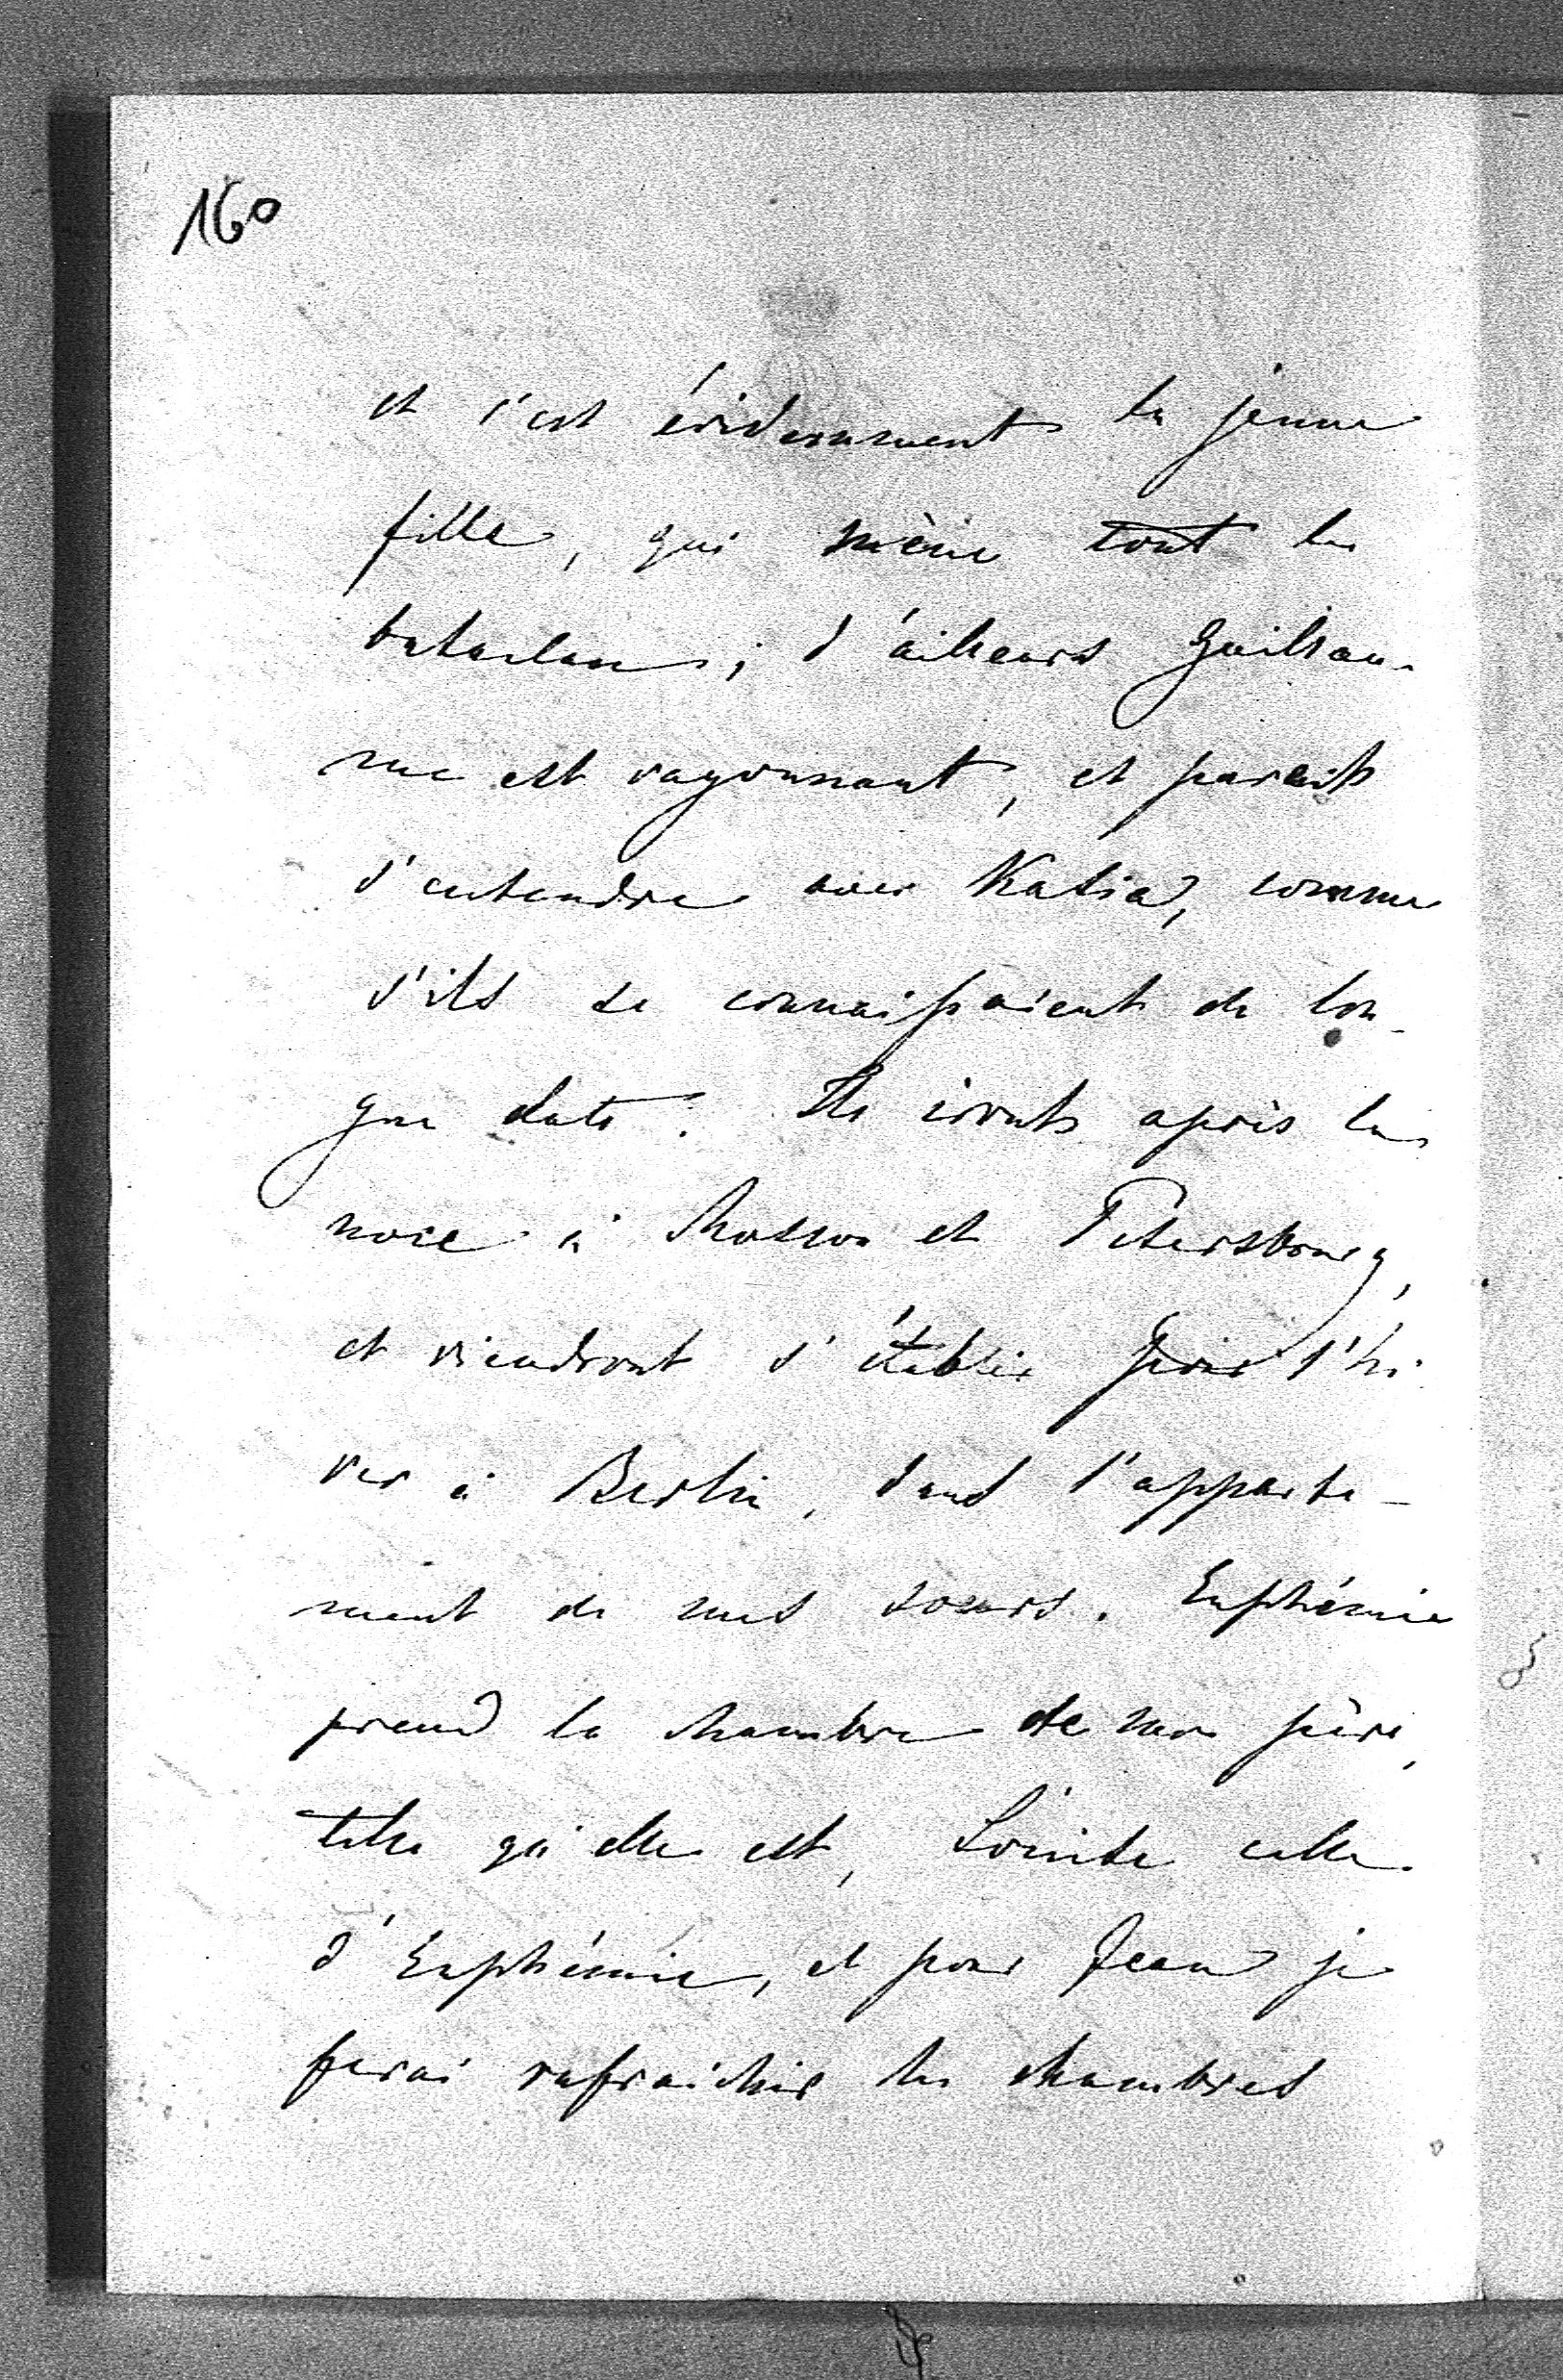 160
et c'est évidemment la jeune
fille, qui mène tout le
bataclan; d'ailleurs Guillau-
me est rayonnant, et parait
s'entendre avec Katia, comme
s'ils se connaissaient de lon-
gue date. Ils iront après la
noce à Moscou et Petersbourg,
et viendront s'établir pour l'hi-
ver à Berlin, dans l'apparte-
ment de mes soeurs. Euphémie
prend la chambre de mon père,
telle qu'elle est, Louise celle
d'Euphémie, et pour Jean je
ferai rafraichir les chambres